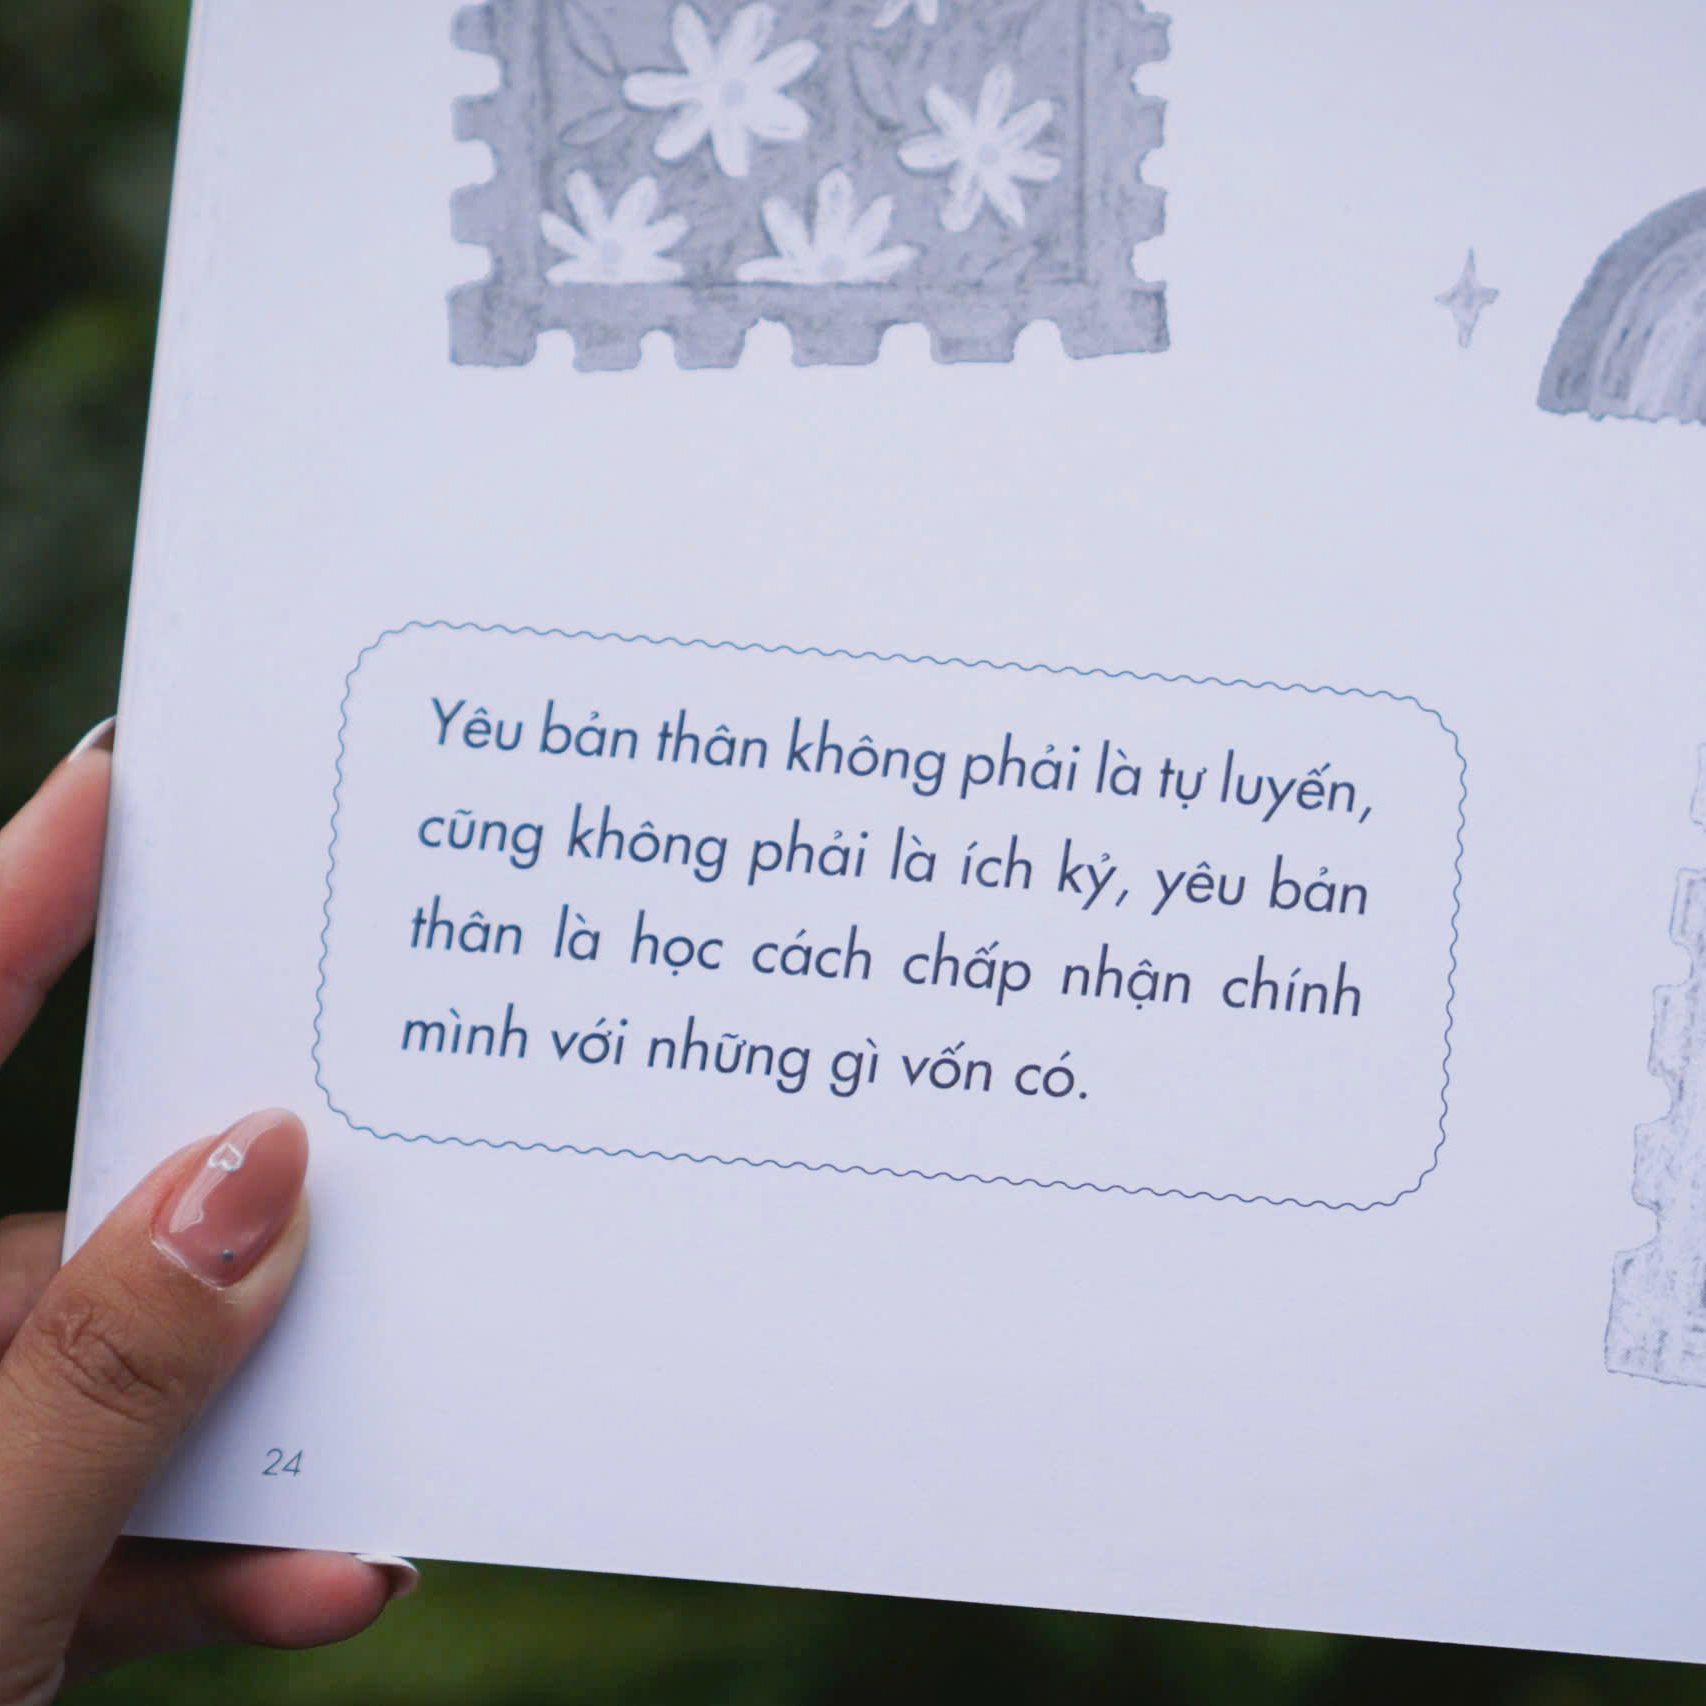 Yêu bản thân không phải là tự luyến,
cũng không phải là ích kỷ, yêu bản
thân là học cách chấp nhận chính
mình với những gì vốn có.
24